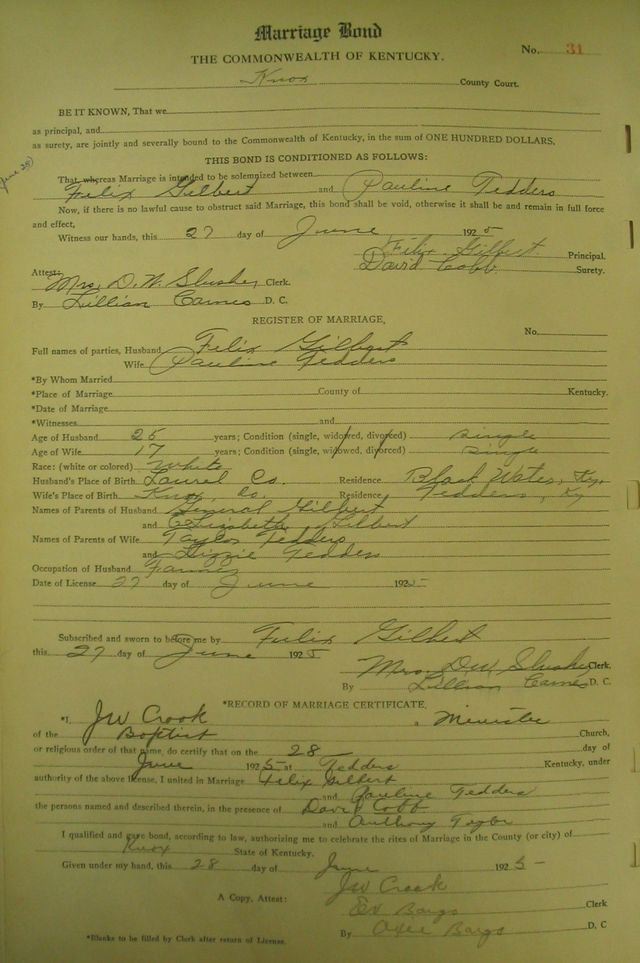 Marriage Bond
THE COMMONWEALTH OF KENTUCKY.
No. 31
Knox County Court.
BE IT KNOWN, That we
as principal, and
as surety, are jointly and severally bound to the Commonwealth of Kentucky, in the sum of ONE HUNDRED DOLLARS.
THIS BOND IS CONDITIONED AS FOLLOWS:
That, whereas Marriage is intended to be solemnized between
Felix Gilbert and Pauline Tedders
Now, if there is no lawful cause to obstruct said Marriage, this bond shall be void, otherwise it shall be and remain in full force
and effect,
Witness our hands, this 27 day of June 1925
Felix Gilbert Principal.
David Cobb Surety.
Attest:
Mrs. D. W. Slusher Clerk.
By Lillian Carnes D. C.
REGISTER OF MARRIAGE,
No.
Full names of parties, Husband Felix Gilbert
Wife Pauline Tedders
*By Whom Married
*Place of Marriage County of Kentucky.
*Date of Marriage
*Witnesses and
Age of Husband 25 years; Condition (single, widowed, divorced) single
Age of Wife 17 years; Condition (single, widowed, divorced) single
Race: (white or colored) White
Husband's Place of Birth Laurel Co. Residence Black Water, Ky.
Wife's Place of Birth Knox, Co. Residence Tedders, Ky
Names of Parents of Husband General Gilbert
and Elizabeth Gilbert
Names of Parents of Wife Taylor Tedders
and Lizzie Tedders
Occupation of Husband Farmer
Date of License 27 day of June 1925
Subscribed and sworn to before me by Felix Gilbert
this 27 day of June 1925
Mrs. D W Slusher Clerk.
By Lillian Carnes D. C.
*RECORD OF MARRIAGE CERTIFICATE,
*I, JW Crook a Minister
of the Baptist Church,
or religious order of that name, do certify that on the 28 day of
June 1925 at Tedders Kentucky, under
authority of the above license, I united in Marriage Felix Gilbert
and Pauline Tedders
the persons named and described therein, in the presence of David Cobb
and Anthony
I qualified and gave bond, according to law, authorizing me to celebrate the rites of Marriage in the County (or city) of
Knox State of Kentucky.
Given under my hand, this 28 day of June 1925
JW Crook
A Copy, Attest: Clerk
By D. C
*Blanks to be filled by Clerk after return of License.